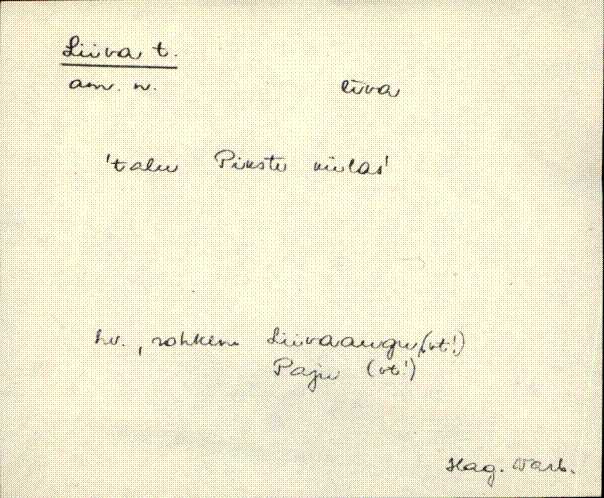 Liiva t.
am. n. liva
'talu Pinste külas'
hv., rohkem Liivaaugu (vt!)
Paju (vt!)
Hag. Varb.